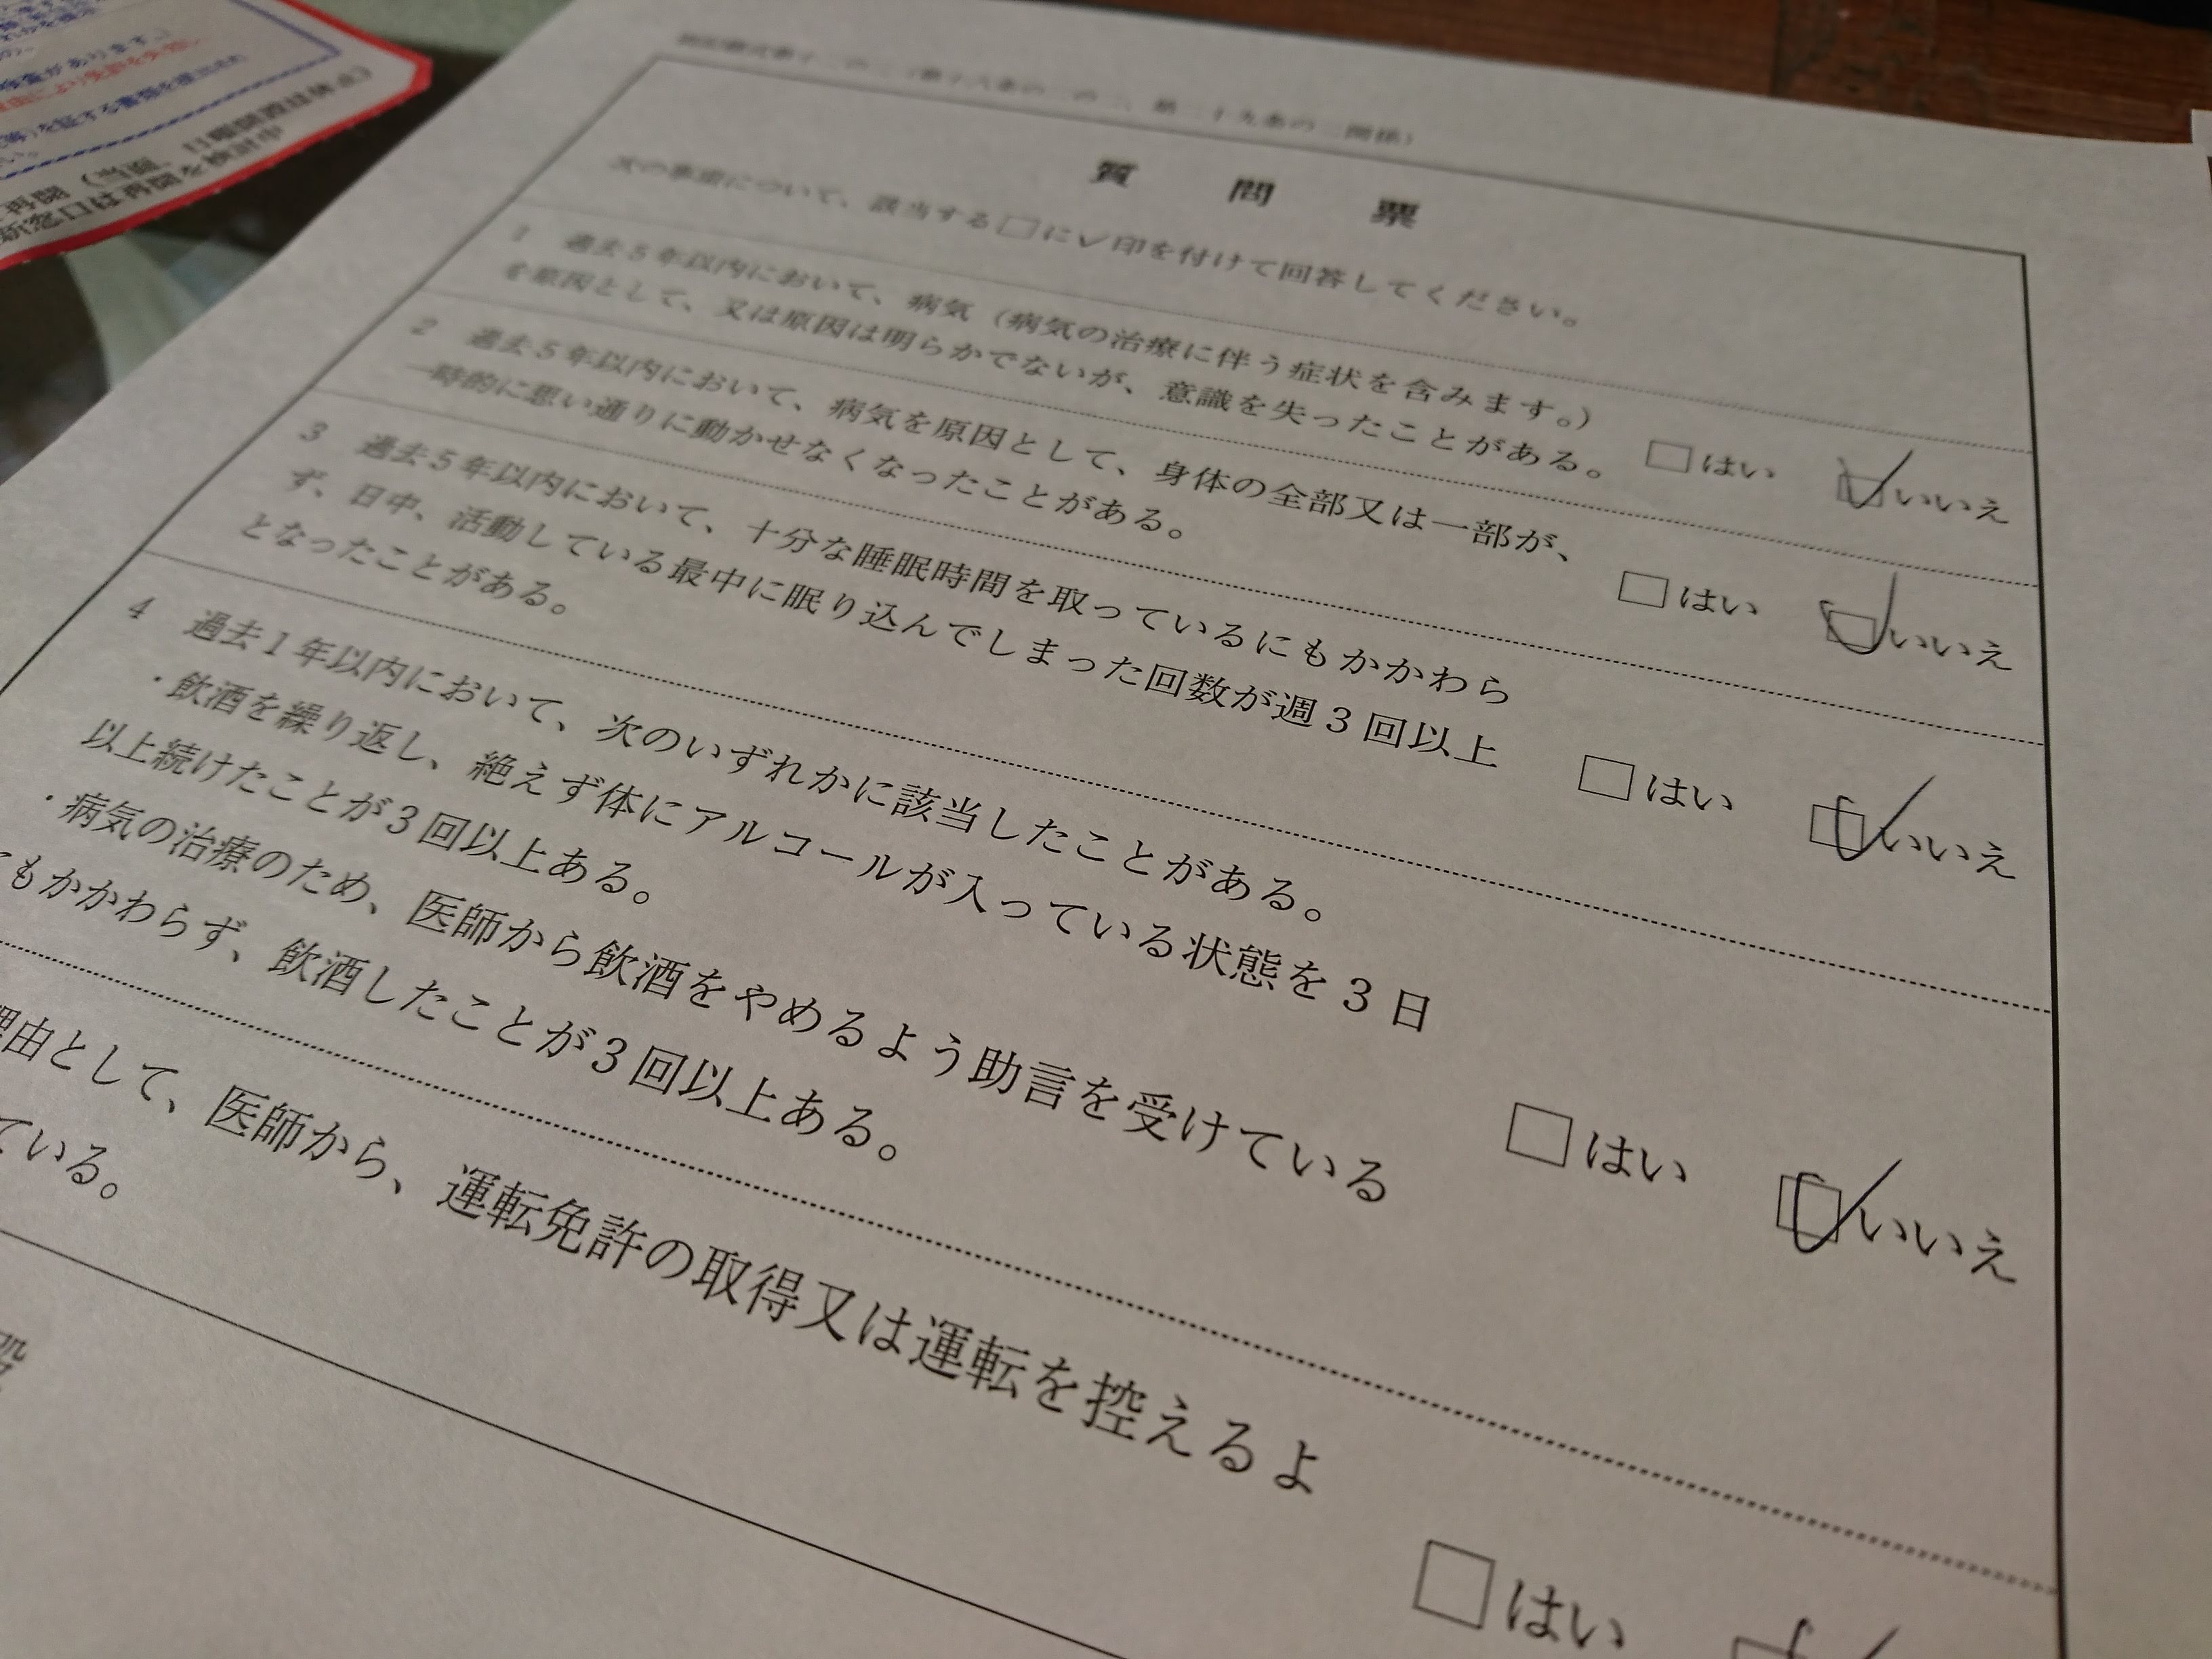 質問票
次の事項について、該当する□に✓印を付けて回答してください。
1 過去5年以内において、病気（病気の治療に伴う症状を含みます。）
を原因として、又は原因は明らかでないが、意識を失ったことがある。 □はい ☑いいえ
2 過去5年以内において、病気を原因として、身体の全部又は一部が、
一時的に思い通りに動かせなくなったことがある。 □はい ☑いいえ
3 過去5年以内において、十分な睡眠時間を取っているにもかかわら
ず、日中、活動している最中に眠り込んでしまった回数が週3回以上
となったことがある。 □はい ☑いいえ
4 過去1年以内において、次のいずれかに該当したことがある。
・飲酒を繰り返し、絶えず体にアルコールが入っている状態を3日
以上続けたことが3回以上ある。
・病気の治療のため、医師から飲酒をやめるよう助言を受けている
もかかわらず、飲酒したことが3回以上ある。 □はい ☑いいえ
理由として、医師から、運転免許の取得又は運転を控えるよ
ている。 □はい
再開（当面、日曜開庁日休止）
新窓口は再開を検討中